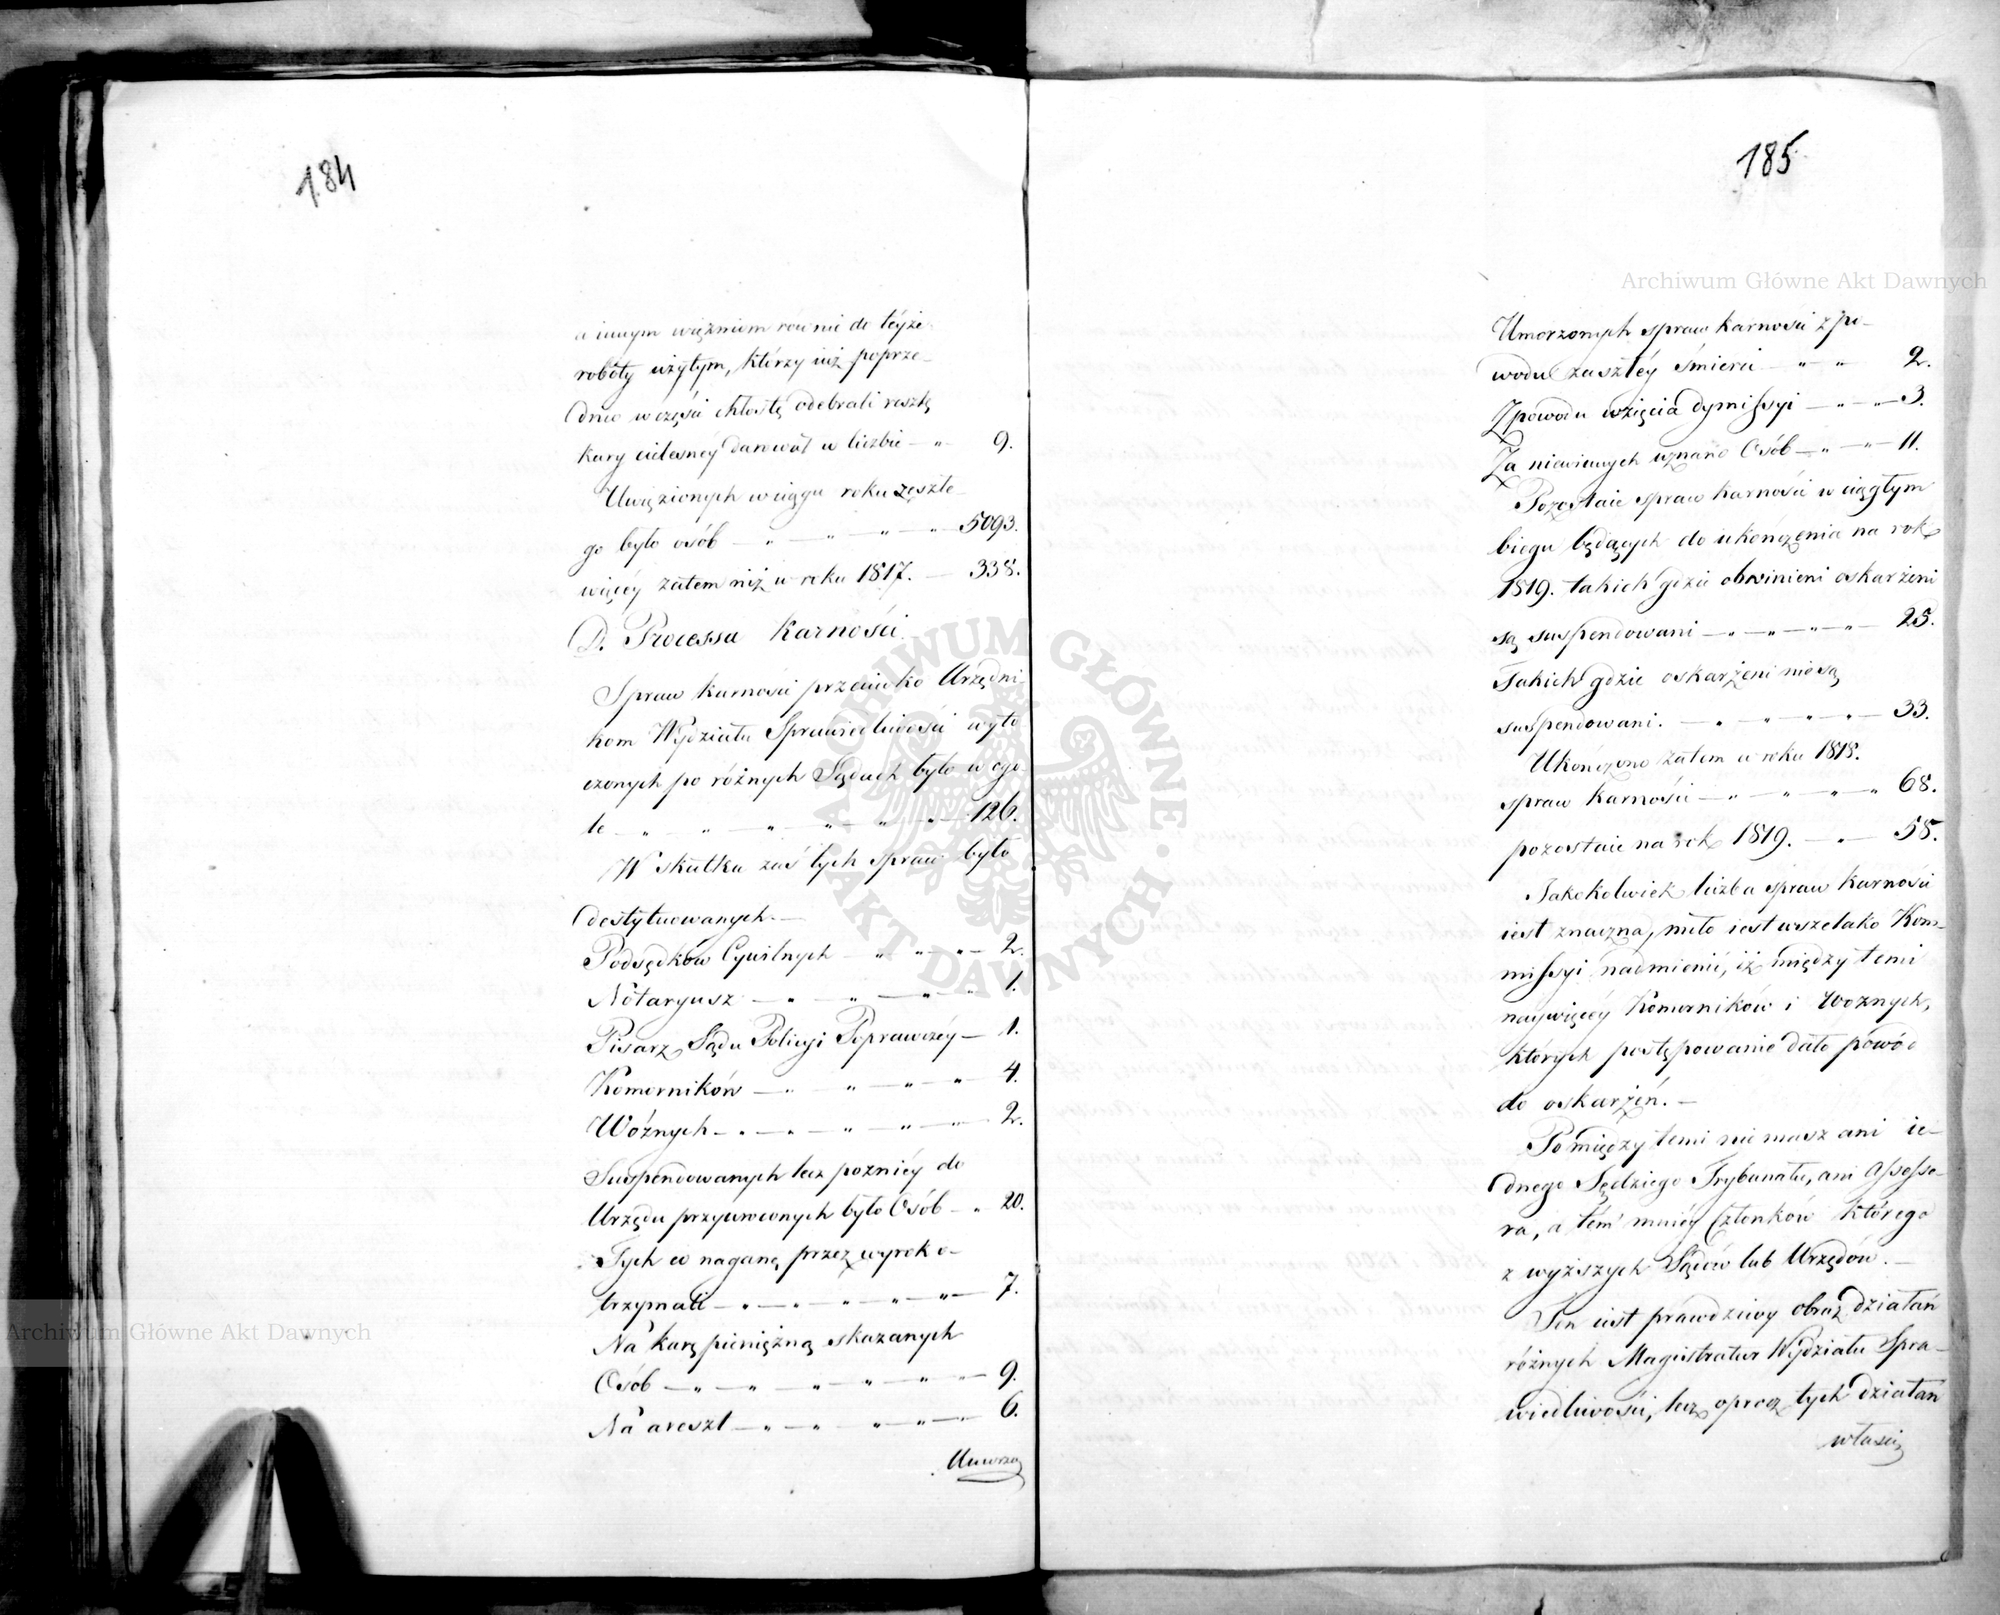 184
a innym więźniom równie do téyże
roboty użytym, którzy iuż poprze-
dnio w części chłostę odebrali resztę
kary cielesnéy darował w liczbie — " 9.
Uwięzionych w ciągu roku zeszłe-
go było osób — " — " — " — " 5093.
więcéy zatem niż w roku 1817. — 338.
D. Processa Karności.
Spraw karności przeciwko Urzędni-
kom Wydziału Sprawiedliwości wyto
czonych po różnych Sądach było w ogó
le — " — " — " — " — " — " 126.
W skutku zaś tych spraw było
destytuowanych. —
Podsędków Cywilnych — " — " — " — 2.
Notaryusz — " — " — " — " 1.
Pisarz Sądu Policyi Poprawczéy — 1.
Komorników — " — " — " — " 4.
Woźnych — " — " — " — " — " — 2.
Suspendowanych lecz pozniéy do
Urzędu przywróconych było Osób — " 20.
Tych co naganę przez wyrok o-
trzymali — " — " — " — " — " — 7.
Na karę pieniężną skazanych
Osób — " — " — " — " — " — 9.
Na areszt — " — " — " — " — 6.
Umorzo
185
Umorzonych spraw karności z po-
wodu zaszłéy śmierci — " — " 2.
Z powodu wzięcia dymissyi — " — " — 3.
Za niewinnych uznano Osób — " — " — 11.
Pozostaie spraw karności w ciągłym
biegu będących do ukończenia na rok
1819. takich gdzie obwinieni oskarżeni
są suspendowani — " — " — " — " — 25.
Takich gdzie oskarżeni nie są
suspendowani. — " — " — " — " — 33.
Ukończono zatem w roku 1818.
spraw karności — " — " — " — " 68.
pozostaie na rok 1819. — " — 58.
Jakokolwiek liczba spraw karności
iest znaczna, miło iest wszelako Kom-
missyi nadmienić, iż między temi
naywięcéy Komorników i Woznych,
których postępowanie dało powód
do oskarżeń. —
Pomiędzy temi nie masz ani ie-
dnego Sędziego Trybunału, ani Assesso-
ra, a tém mniéy Członków którego
z wyższych Sądów lub Urzędów. —
Ten iest prawdziwy obraz działań
różnych Magistratur Wydziału Spra-
wiedliwości, lecz oprócz tych działań
właści
Archiwum Główne Akt Dawnych
Archiwum Główne Akt Dawnych
ARCHIWUM GŁÓWNE · AKT DAWNYCH ·